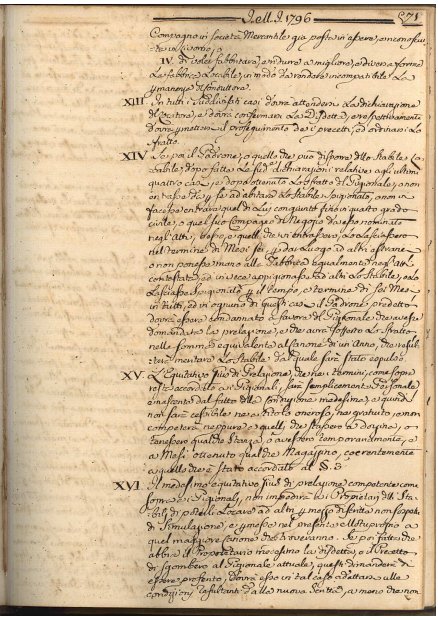 Dell' A. 1796
271
Compagno in società Mercantile già posta in essere, e riconosciuta
in Livorno, o
IV. di voler fabbricare, e ridurre a migliore, e diversa forma
La fabbrica Locabile, in modo da renderla incompatibile La
permanenza del Conduttore.
XIII In tutti i suddivisati casi dovrà attendersi La dichiarazione
del Locatore, e dovrà confermarsi La disdetta, e respettivamente
dovrà permettersi il proseguimento de' i precetti, ed ordinarsi Lo
sfratto.
XIV Se poi il Padrone, o quello che può disporre dello stabile Lo
cabile, dopo fatte Le sud.e dichiarazioni relative agli ultimi
quattro casi, e dopo ottenuto Lo sfratto del Pigionale, o non
entrasse di per se ad abitare Lo stabile spigionato, o non vi
facesse entrare quel di Lui congiunto fino in quarto grado
civile, o quel suo Compagno di Negozio da esso nominato
negl' atti, o se pure quelli che vi entrassero, Lo Lasciassero
nel termine di Mesi sei, per dar Luogo ad altri estranei
o non ponesse mano alle fabbriche egualmente negl' atti
contestate, ed in vece appigionasse ad altri Lo stabile, e Lo
Lasciasse spigionato per il tempo, e termine di sei Mesi
in tutti, ed in ognuno di questi casi il Padrone predetto
dovrà essere condannato a favore del Pigionale che avesse
domandata La prelazione, e che avrà sofferto Lo sfratto
nella somma equivalente al Canone di un' Anno, che resul-
terà meritare Lo stabile dal quale sarà stato espulso.
XV. L' Equitativo Gius di Prelazione, che nei termini, come sopra
resta accordato ai Pigionali, sarà semplicemente Personale
e nascente dal fatto della conduzione medesima, e quindi
non sarà cessibile nè a titolo oneroso, nè gratuito, e non
competerà neppure a quelli, che stassero a dozzina, o
tenessero qualche stanza, o avessero temporariamente, e
a Mesi ottenuto qualche Magazzino, coerentemente
a quello che è stato accordato al §. 3
XVI. Il medesimo equitativo Gius di prelazione competente come
sopra ai Pigionali, non impedirà ai Proprietari delli Sta-
bili di poterli Locare ad altri per mezzo di scritta non sospetta
di simulazione, e permesso nel presente Motuproprio a
quel maggiore canone che troveranno. Se poi fatta che
abbia il Proprietario medesimo La disdetta, o il Precetto
di sgombero al Pigionale attuale, questi dimanderà di
essere preferito, dovrà esso in tal caso adattarsi alle
condizioni resultanti dalla nuova scritta, a meno che non